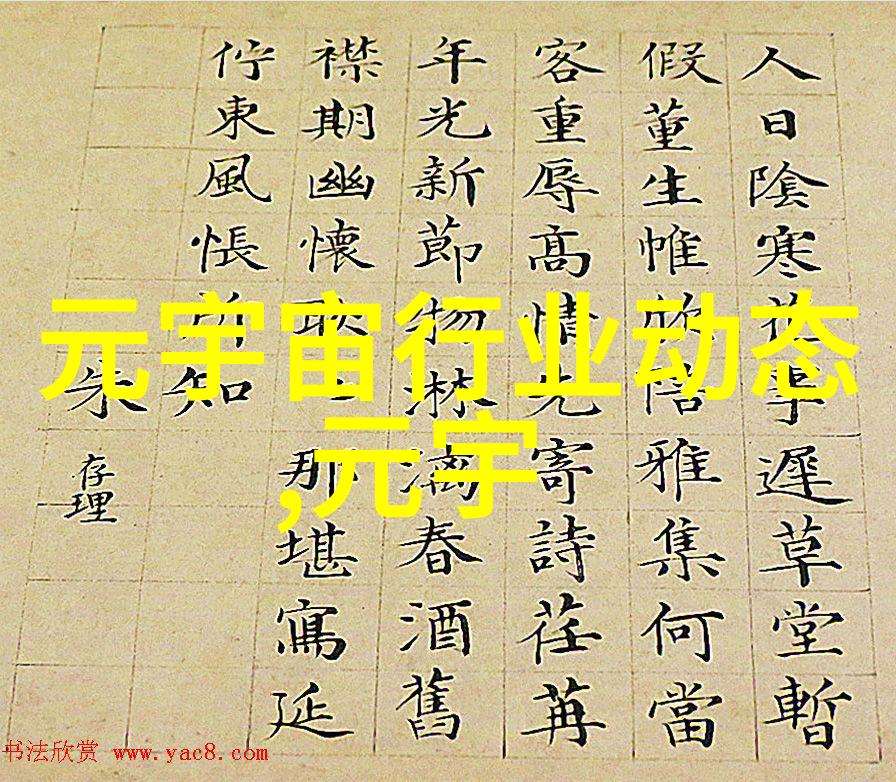 元宇宙行业动态
,元宇
人日陰寒花事遲草堂暫
假董生帷欣陪雅集何當
客重辱高情先寄詩荏苒
年光新節物淋漓春酒舊
襟期幽懷耿々那堪寫延
佇東風悵所知
朱存理
书法欣赏 www.yac8.com